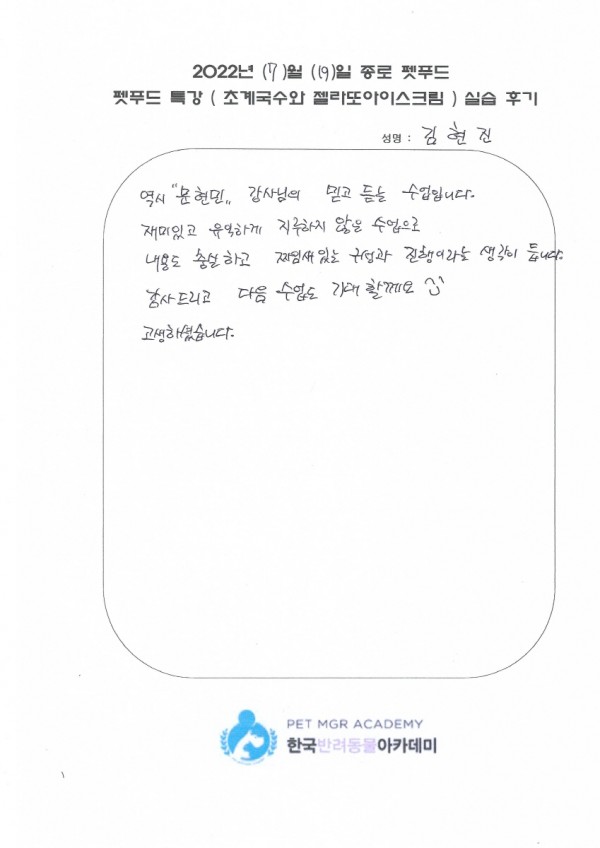 2022년 (7)월 (19)일 종로 펫푸드
펫푸드 특강 ( 초계국수와 젤라또아이스크림 ) 실습 후기
성명 : 김현진
역시 "문현민" 강사님의 믿고 듣는 수업입니다.
재미있고 유익하게 지루하지 않은 수업으로
내용도 충실하고 짜임새있는 구성과 진행이라는 생각이 듭니다.
감사드리고 다음 수업도 기대 할께요
고생하셨습니다.
PET MGR ACADEMY
한국반려동물아카데미